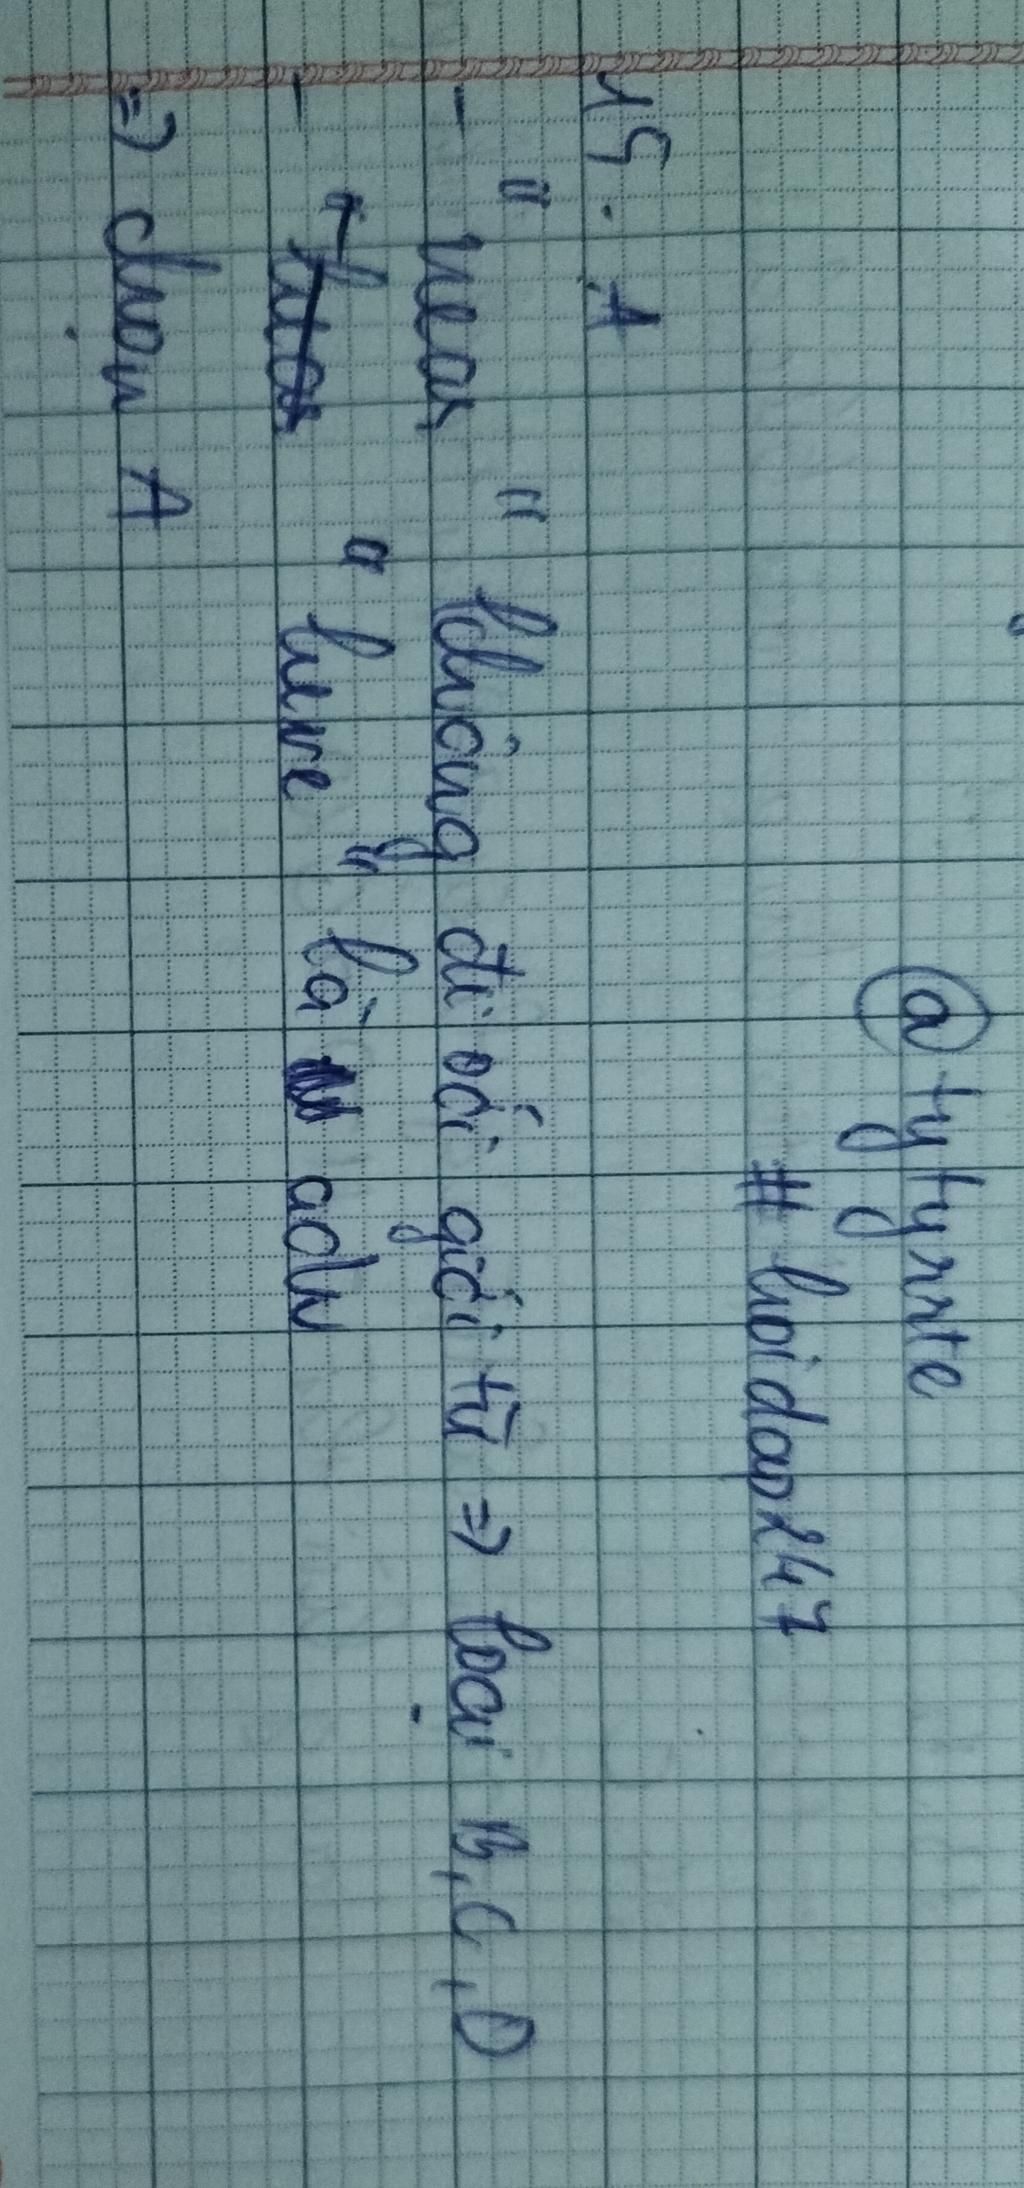 @tytyrrte
# hoidap247
15. A
- "near" không đi với giới từ => loại B, C, D
- "here" là adv
=> chọn A